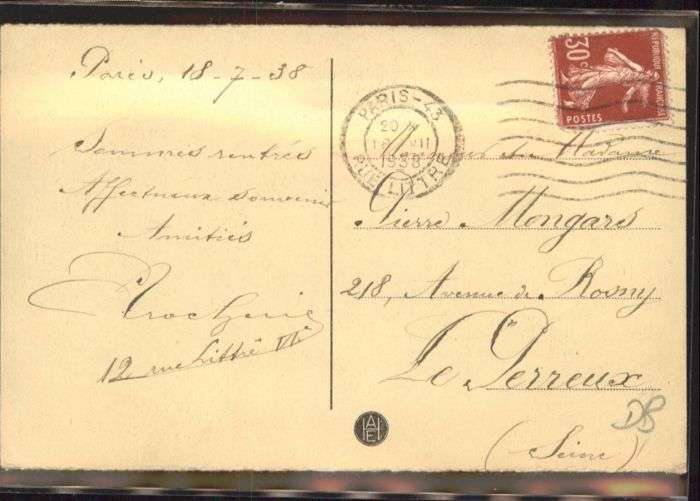 Paris, 18-7-38
Sommes rentrés
Affectueux souvenir
Amitiés
12 rue Littré VIe
PARIS-43
20
1938
RUE LITTRE
30c
REPUBLIQUE FRANÇAISE
POSTES
Monsieur et Madame
Pierre Mongars
218, Avenue de Rosny
Le Perreux
(Seine)
DB